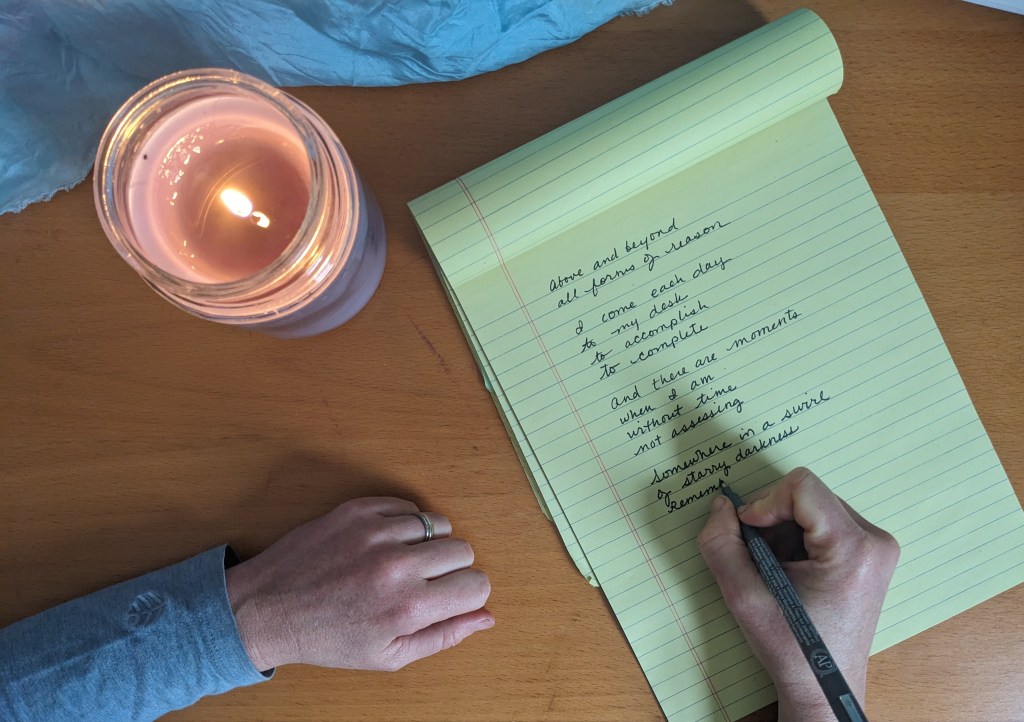 Above and beyond
all forms of reason
I come each day
to my desk
to accomplish
to complete
And there are moments
when I am
without time
not assessing
Somewhere in a swirl
of starry darkness
Rememb
AP